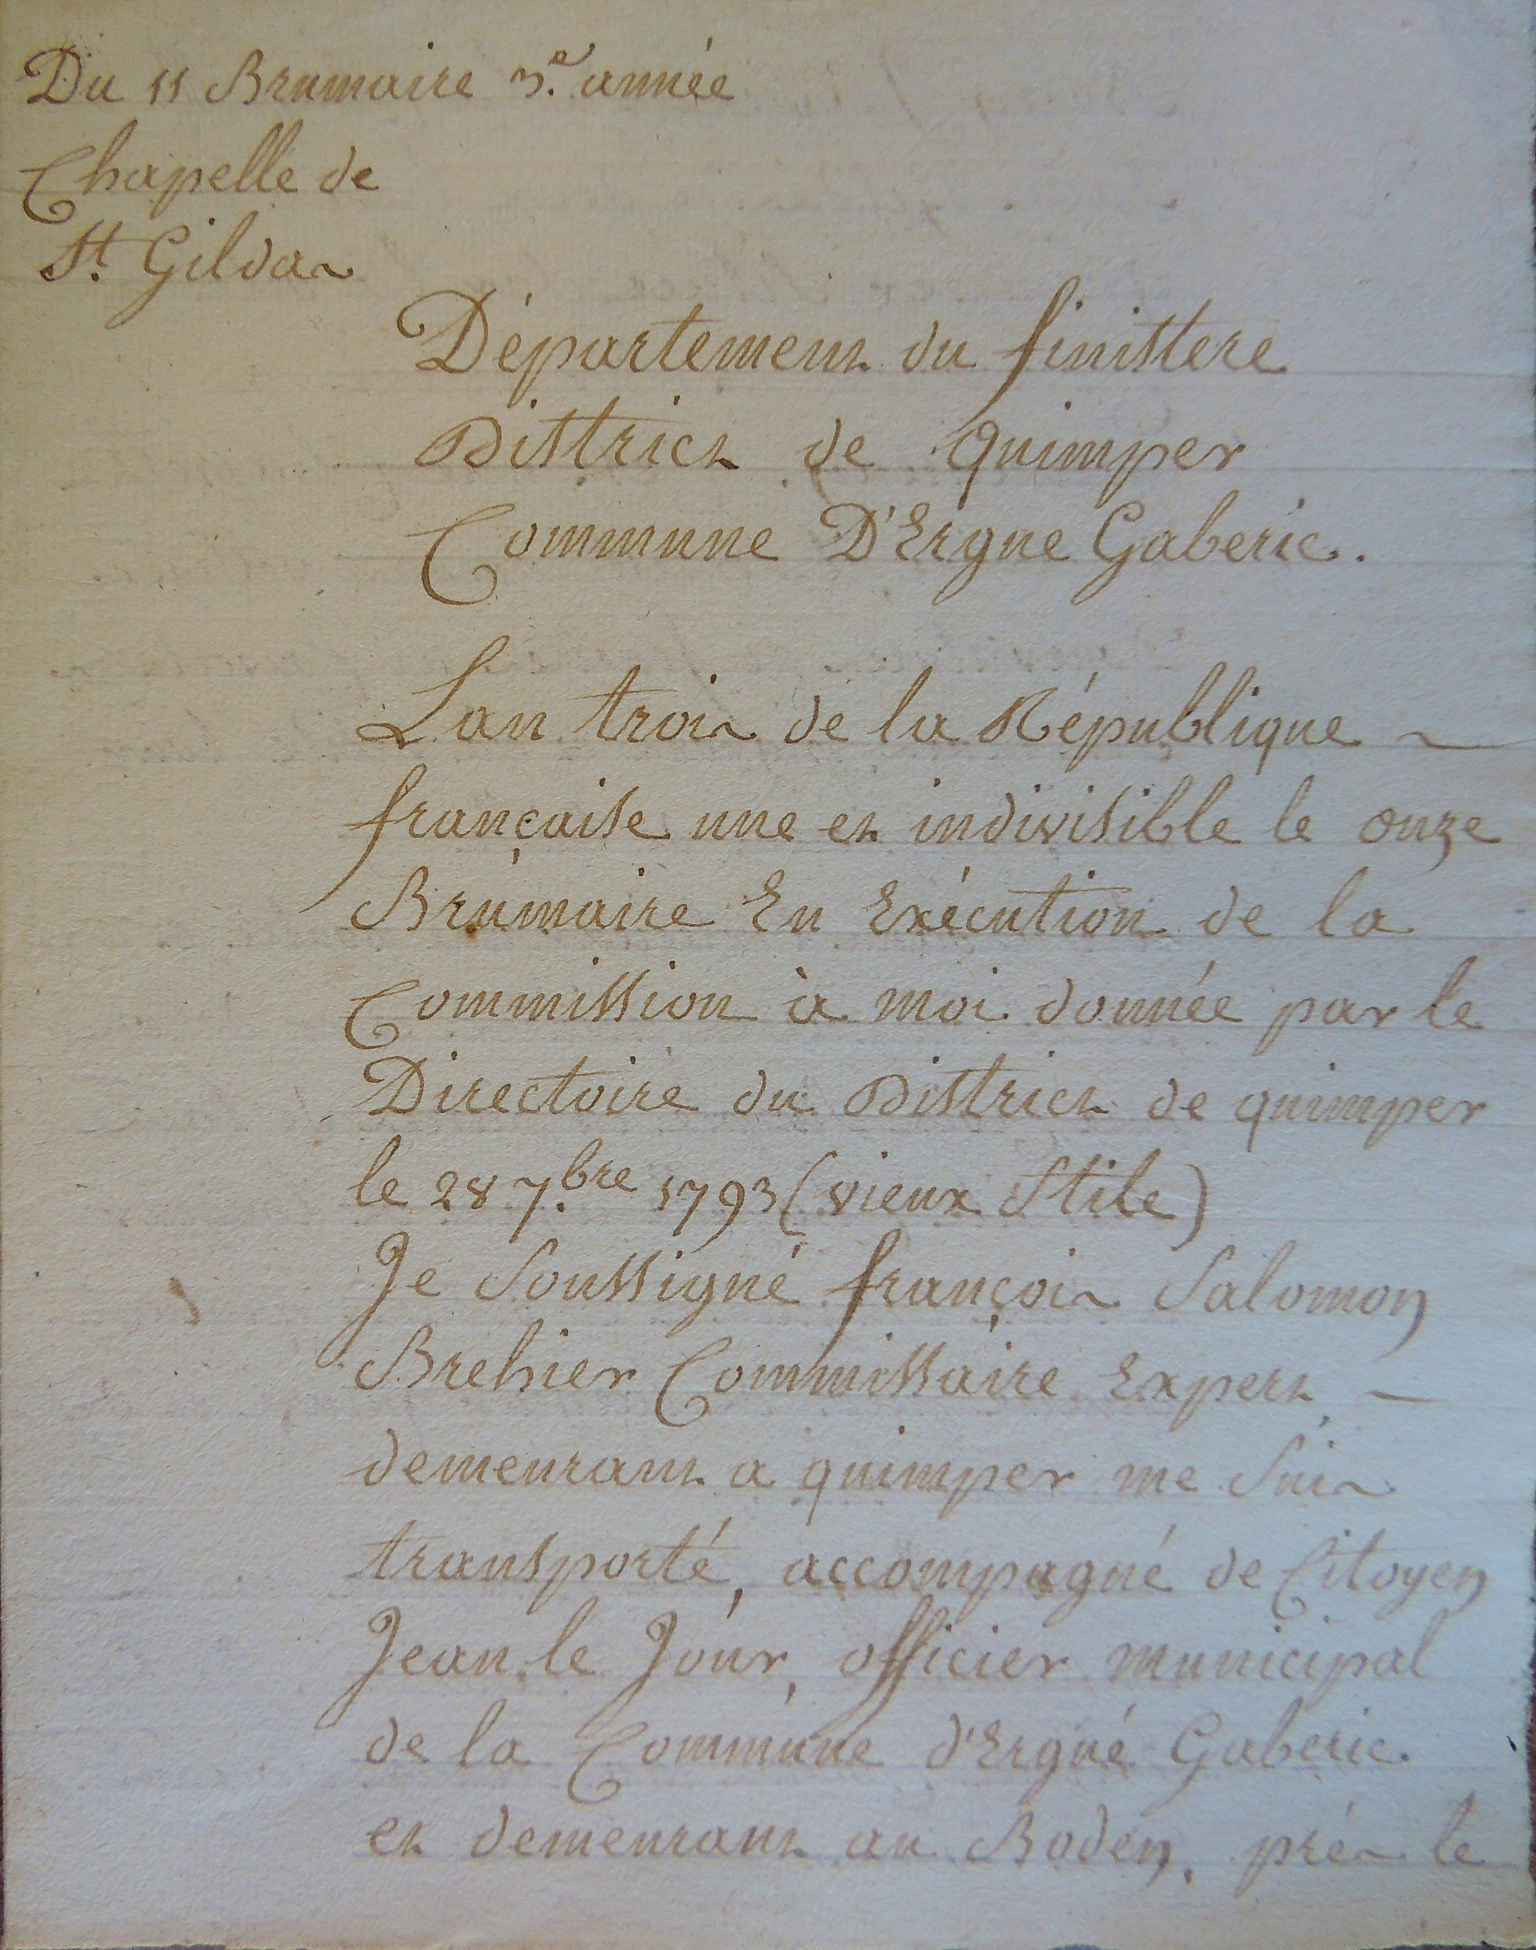 Du 11 Brumaire 3.e année
Chapelle de
St. Gildas
Département du finistere
District de quimper
Commune D'Ergue Gaberic.
Lan trois de la République
française une et indivisible le onze
Brumaire En Exécution de la
Commission à moi donnée par le
Directoire du District de quimper
le 28 7.bre 1793 (vieux Stile)
Je Soussigné françois Salomon
Brehier Commissaire Expert
demeurant a quimper me Suis
transporté, accompagné de Citoyen
Jean le Jour, officier municipal
de la Commune d'Ergué Gaberic
et demeurant au Boden, prés le